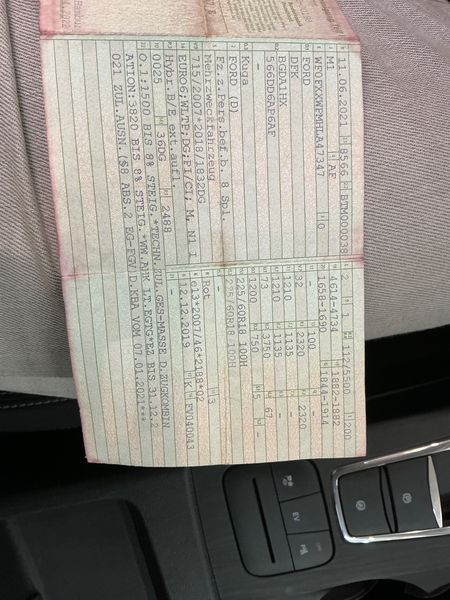 11.06.2021 8566 BTM000038
M1 AF
WF0FXXWPMHLA47347 0
FORD
DFK
BGDA1HK
566DD6AP6AF
Kuga
FORD (D)
Fz.z.Pers.bef.b. 8 Spl.
Mehrzweckfahrzeug
715/2007*2018/1832DG
EURO6;WLTP;DG;PI/CI; M, N1 I
Hybr.B/E ext.aufl.
0025 36DG 2488
2 1 112/5500 200
4614-4734 1882-1882
1658-1690 1844-1914
- 100 -
32 2320 2320
1210 1135 -
1210 1135 -
73 3750 67
1200 750 5 -
225/60R18 100H
225/60R18 100H
-
Rot 3
e13*2007/46*2188*02
12.12.2019 K FV040043
O.1:1500 BIS 8% STEIG.*TECHN.ZUL.GES-MASSE D.ZUGKOMBIN
ATION:3820 BIS 8% STEIG.*WW.AHK LT.EGTG*EZ BIS 31.12.2
021 ZUL.AUSN.($8 ABS.2 EG-FGV)D.KBA VOM 07.01.2021***
EV